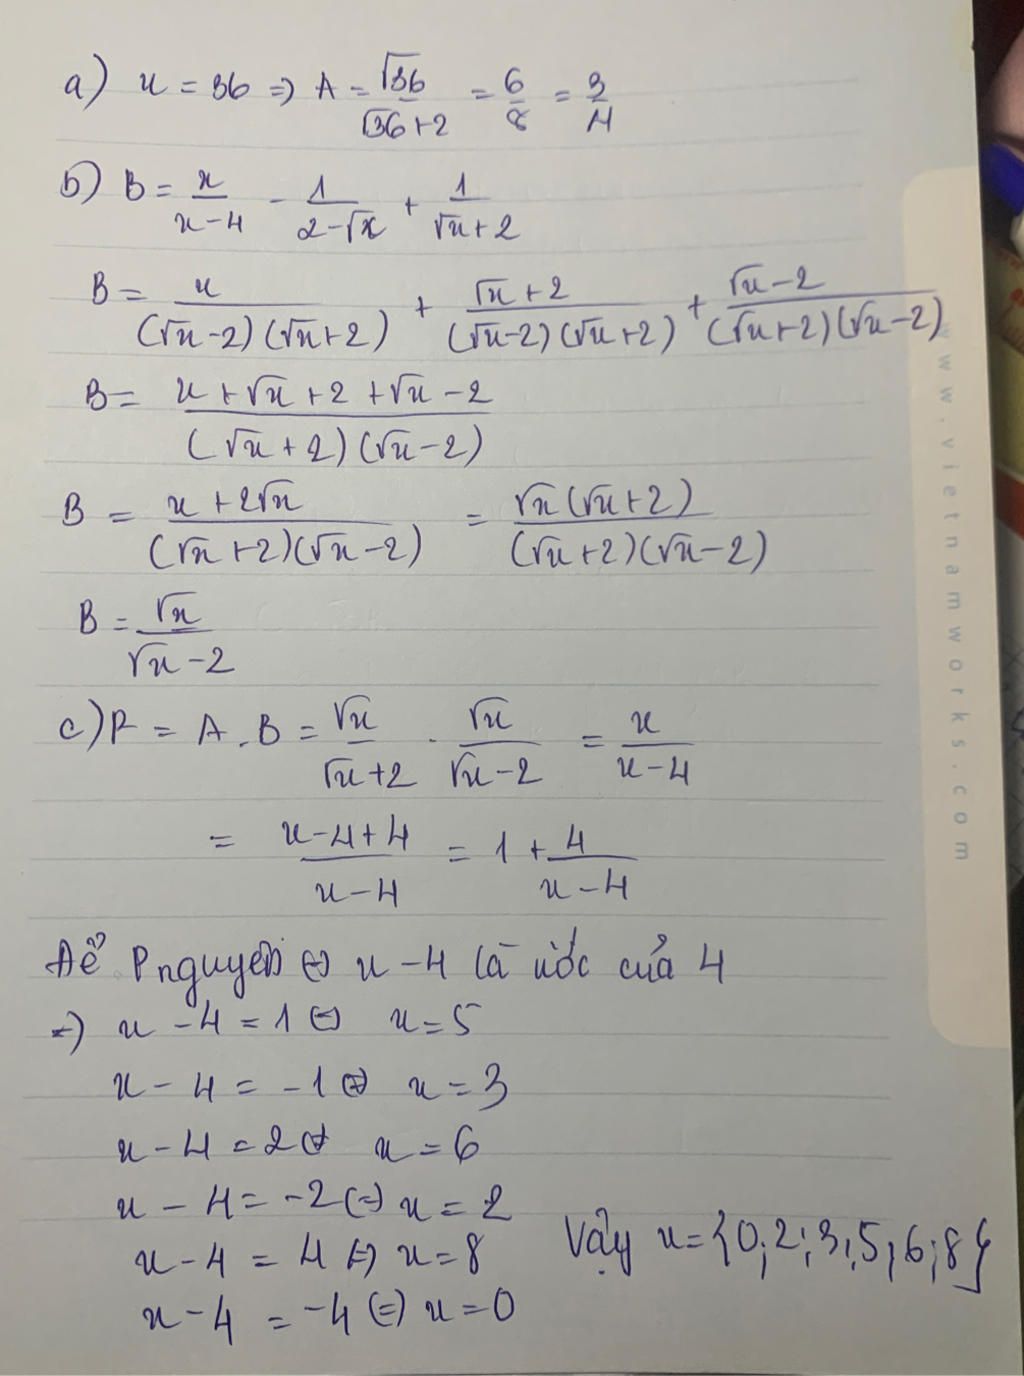 a) x = 36 => A = √36/(√36+2) = 6/8 = 3/4
b) B = x/(x-4) - 1/(2-√x) + 1/(√x+2)
B = x/((√x-2)(√x+2)) + (√x+2)/((√x-2)(√x+2)) + (√x-2)/((√x+2)(√x-2))
B = (x+√x+2+√x-2)/((√x+2)(√x-2))
B = (x+2√x)/((√x+2)(√x-2)) = √x(√x+2)/((√x+2)(√x-2))
B = √x/(√x-2)
c) P = A.B = √x/(√x+2) . √x/(√x-2) = x/(x-4)
= (x-4+4)/(x-4) = 1 + 4/(x-4)
Để P nguyên <=> x-4 là ước của 4
=> x-4 = 1 <=> x = 5
x-4 = -1 <=> x = 3
x-4 = 2 <=> x = 6
x-4 = -2 <=> x = 2
x-4 = 4 <=> x = 8
x-4 = -4 <=> x = 0
Vậy x = {0;2;3;5;6;8}
www.vietnamworks.com